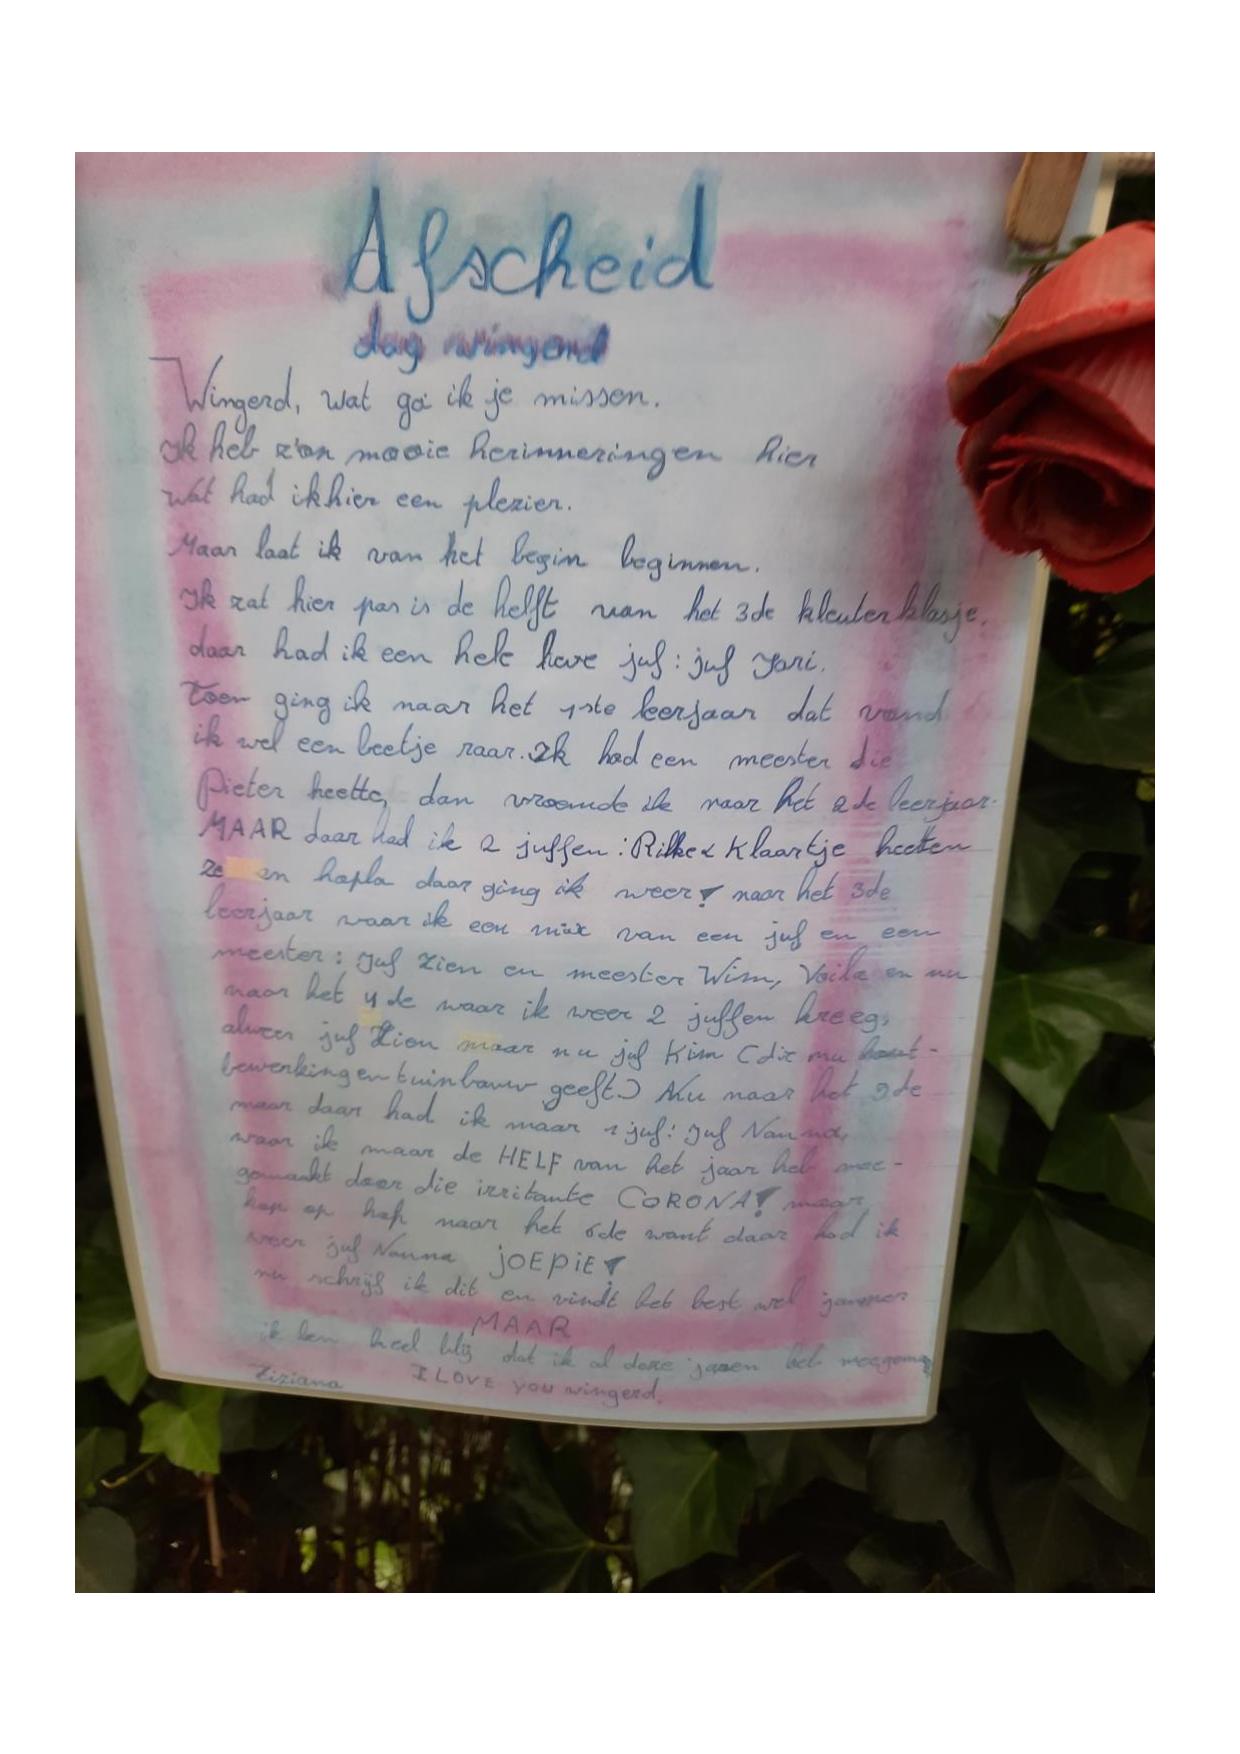 Afscheid
dag wingerd
Wingerd, wat ga ik je missen.
Ik heb z'on mooie herinneringen hier
wat had ik hier een plezier.
Maar laat ik van het begin beginnen.
Ik zat hier pas is de helft van het 3de kleuterklasje.
daar had ik een hele lieve juf: juf Jori.
Toen ging ik naar het 1ste leerjaar dat vond
ik wel een beetje raar. Ik had een meester die
Pieter heette, dan vroemde ik naar het 2de leerjaar.
MAAR daar had ik 2 juffen: Rilke & Klaartje heetten
ze en hopla daar ging ik weer! naar het 3de
leerjaar waar ik een mix van een juf en een
meester: Juf Zien en meester Wim, Voila en nu
naar het 4de waar ik weer 2 juffen kreeg,
alweer juf Zien maar nu juf Kim (die nu hout-
bewerking en tuinbauw geeft) Nu naar het 5de
maar daar had ik maar 1 juf: Juf Nanna,
waar ik maar de HELF van het jaar heb mee-
gemaakt door die irritante CORONA! maar
hop op hop naar het 6de want daar had ik
weer juf Nanna JOEPIE!
nu schrijf ik dit en vindt het best wel jammer
MAAR
ik ben heel blij dat ik al deze jaren heb
Tiziana I LOVE you wingerd.